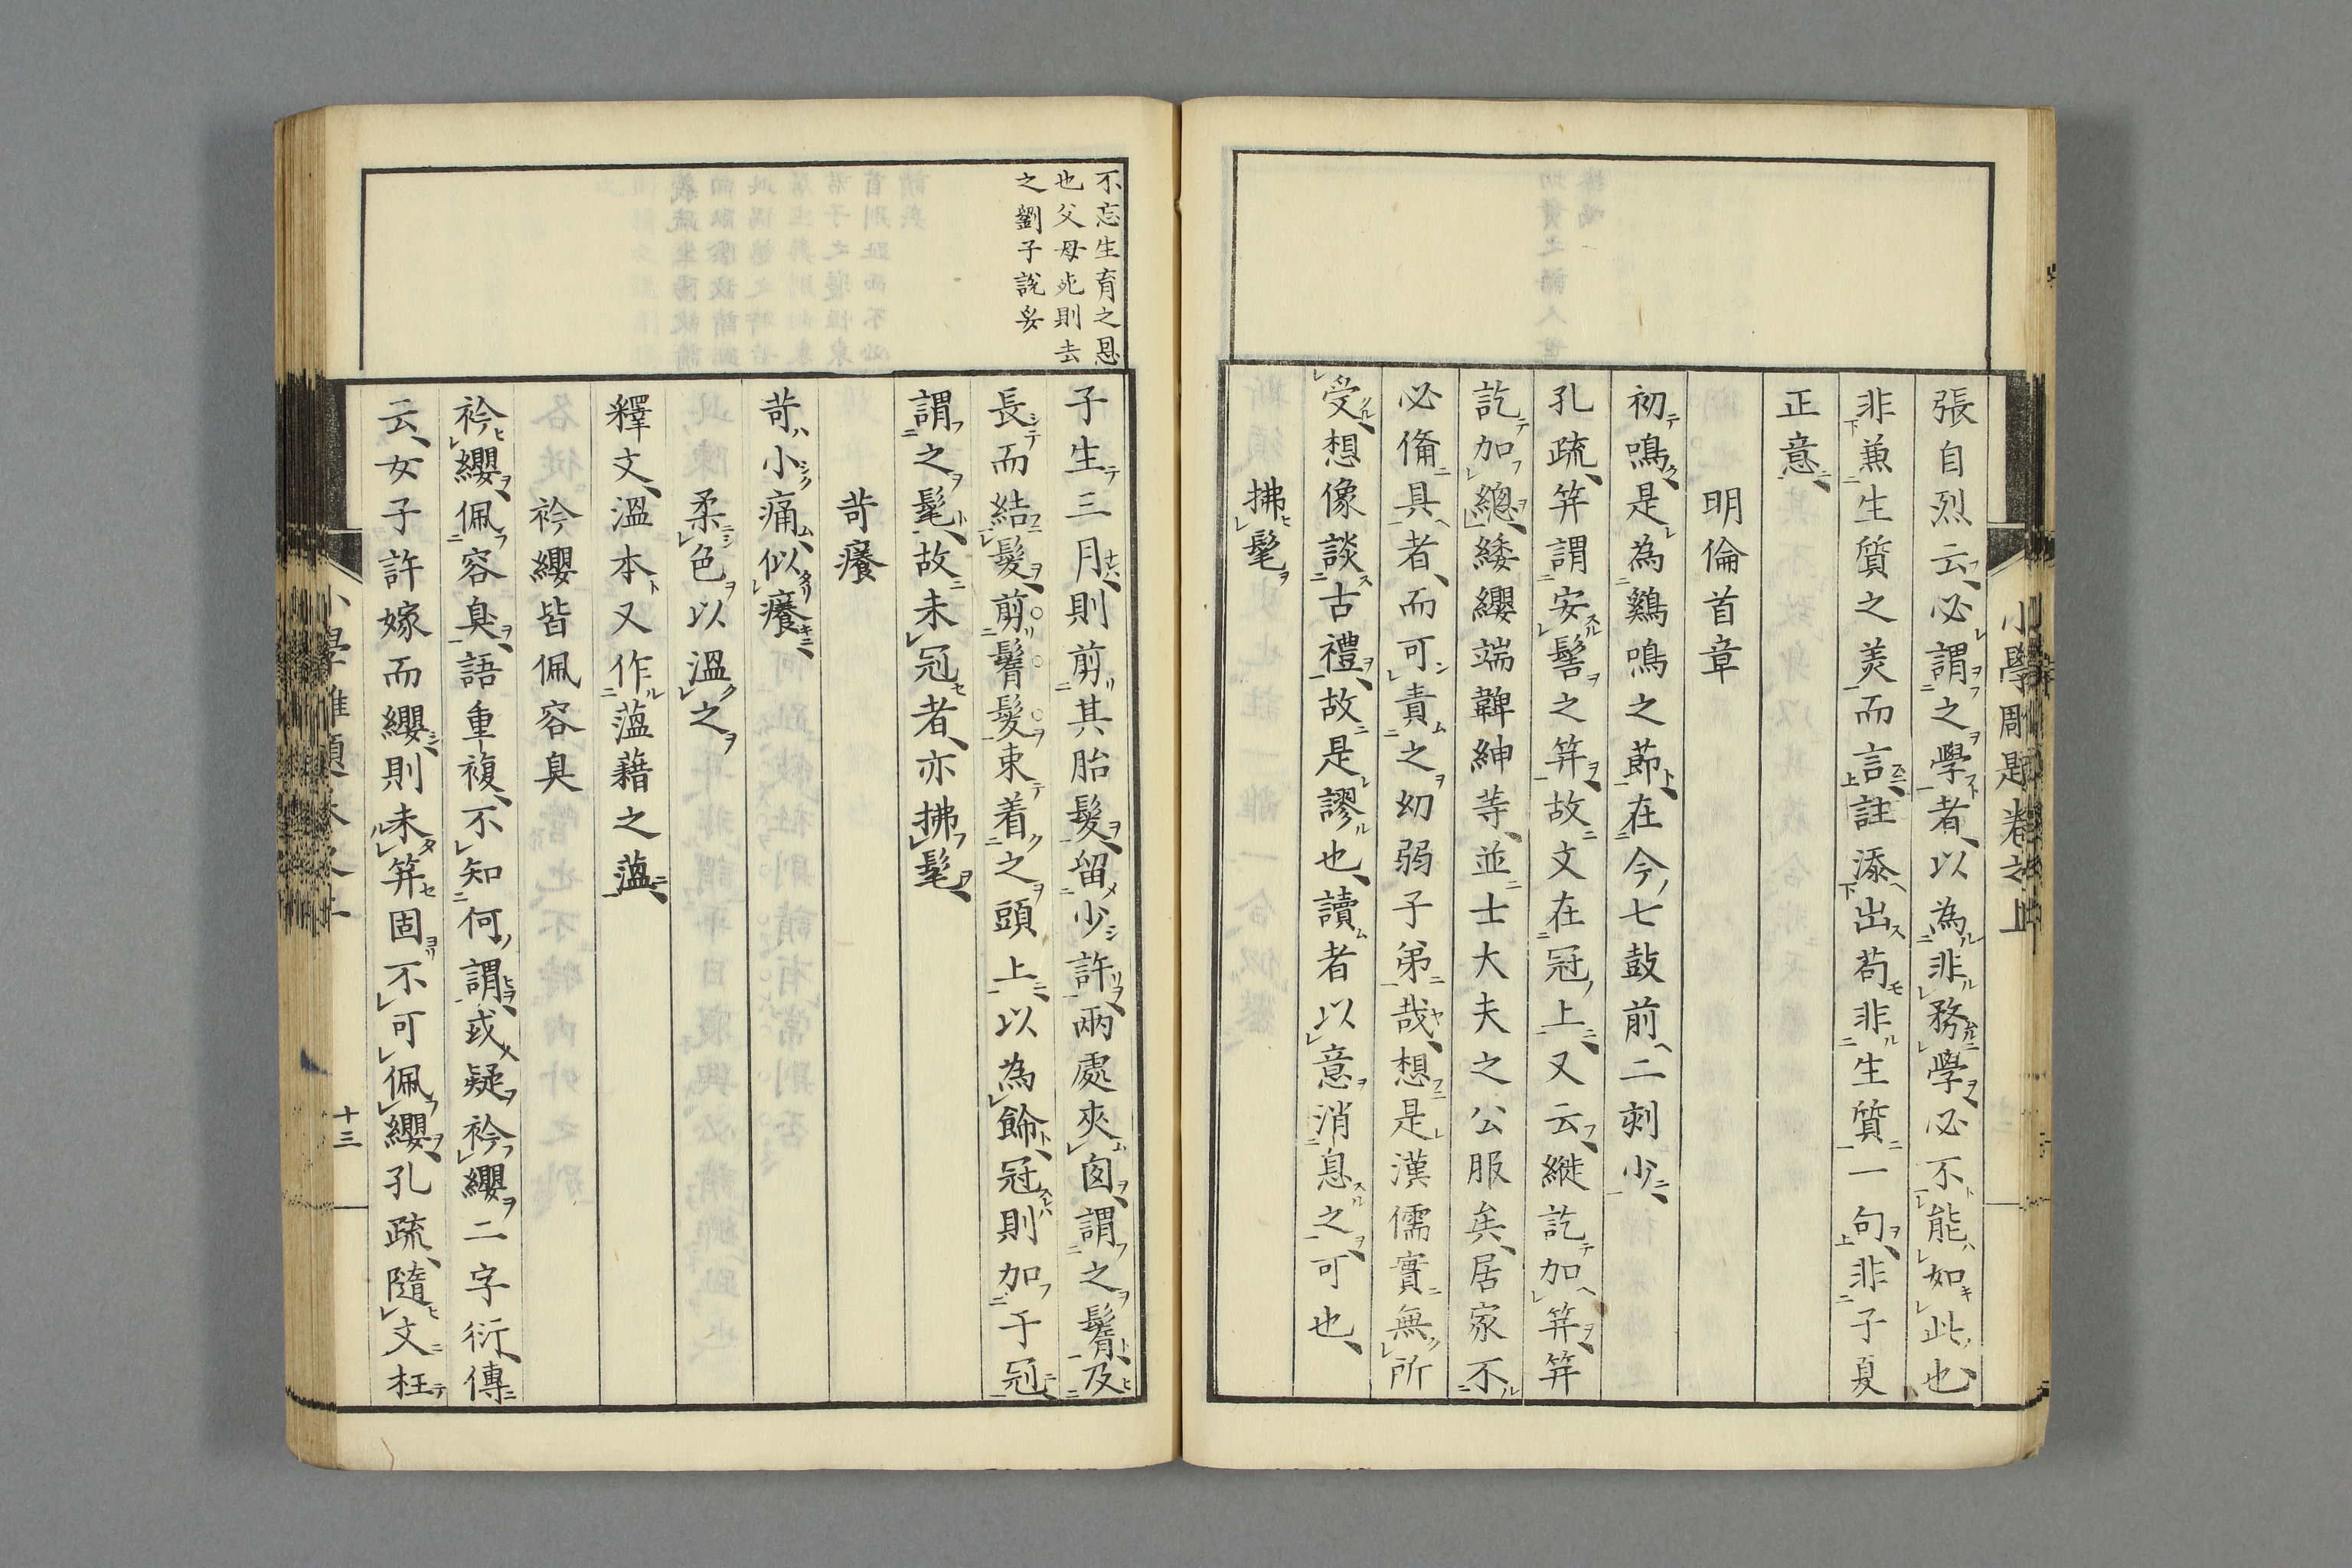 張自烈云必謂之學者以為非務學必不能如此也
非兼生質之美而言註添出苟非生質一句非子夏
正意
明倫首章
初鳴是為鷄鳴之節在今七鼓前二刺少
孔疏笄謂安髻之笄故文在冠上又云縰訖加笄笄
訖加總緌纓端韠紳等並士大夫之公服矣居家不
必備具者而可責之幼弱子弟哉想是漢儒實無所
受想像談古禮故是謬也讀者以意消息之可也
拂髦
小學雕題卷之上
不忘生育之恩
也父母死則去
之劉子說妥
子生三月則剪其胎髮留少許兩處夾囟謂之鬌及
長而結髮剪鬌髮束着之頭上以為餙冠則加于冠
謂之髦故未冠者亦拂髦
苛癢
苛小痛似癢
柔色以溫之
釋文溫本又作薀藉之薀
衿纓皆佩容臭
衿纓佩容臭語重複不知何謂或疑衿纓二字衍傳
云女子許嫁而纓則未笄固不可佩纓孔疏隨文枉
十三